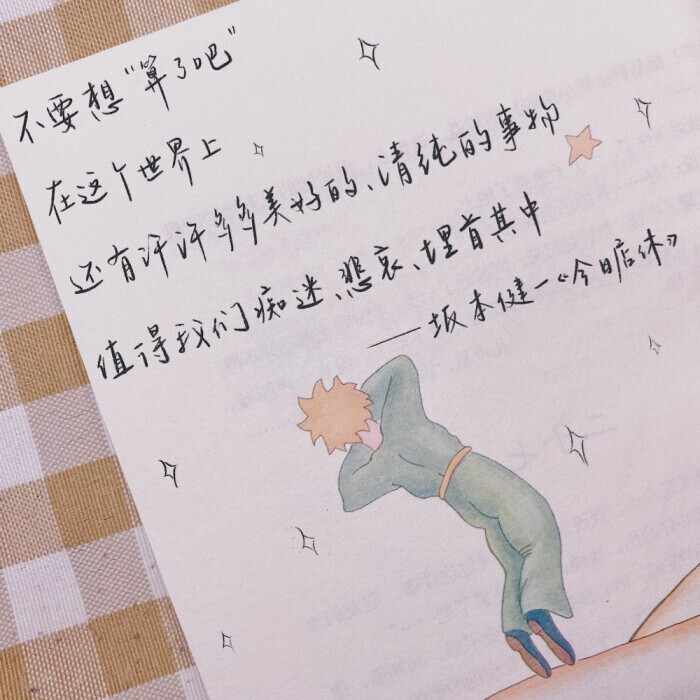 不要想“算了吧”
在这个世界上
还有许许多多美好的、清纯的事物
值得我们痴迷、悲哀、埋首其中
——坂本健一《今日店休》
二十七